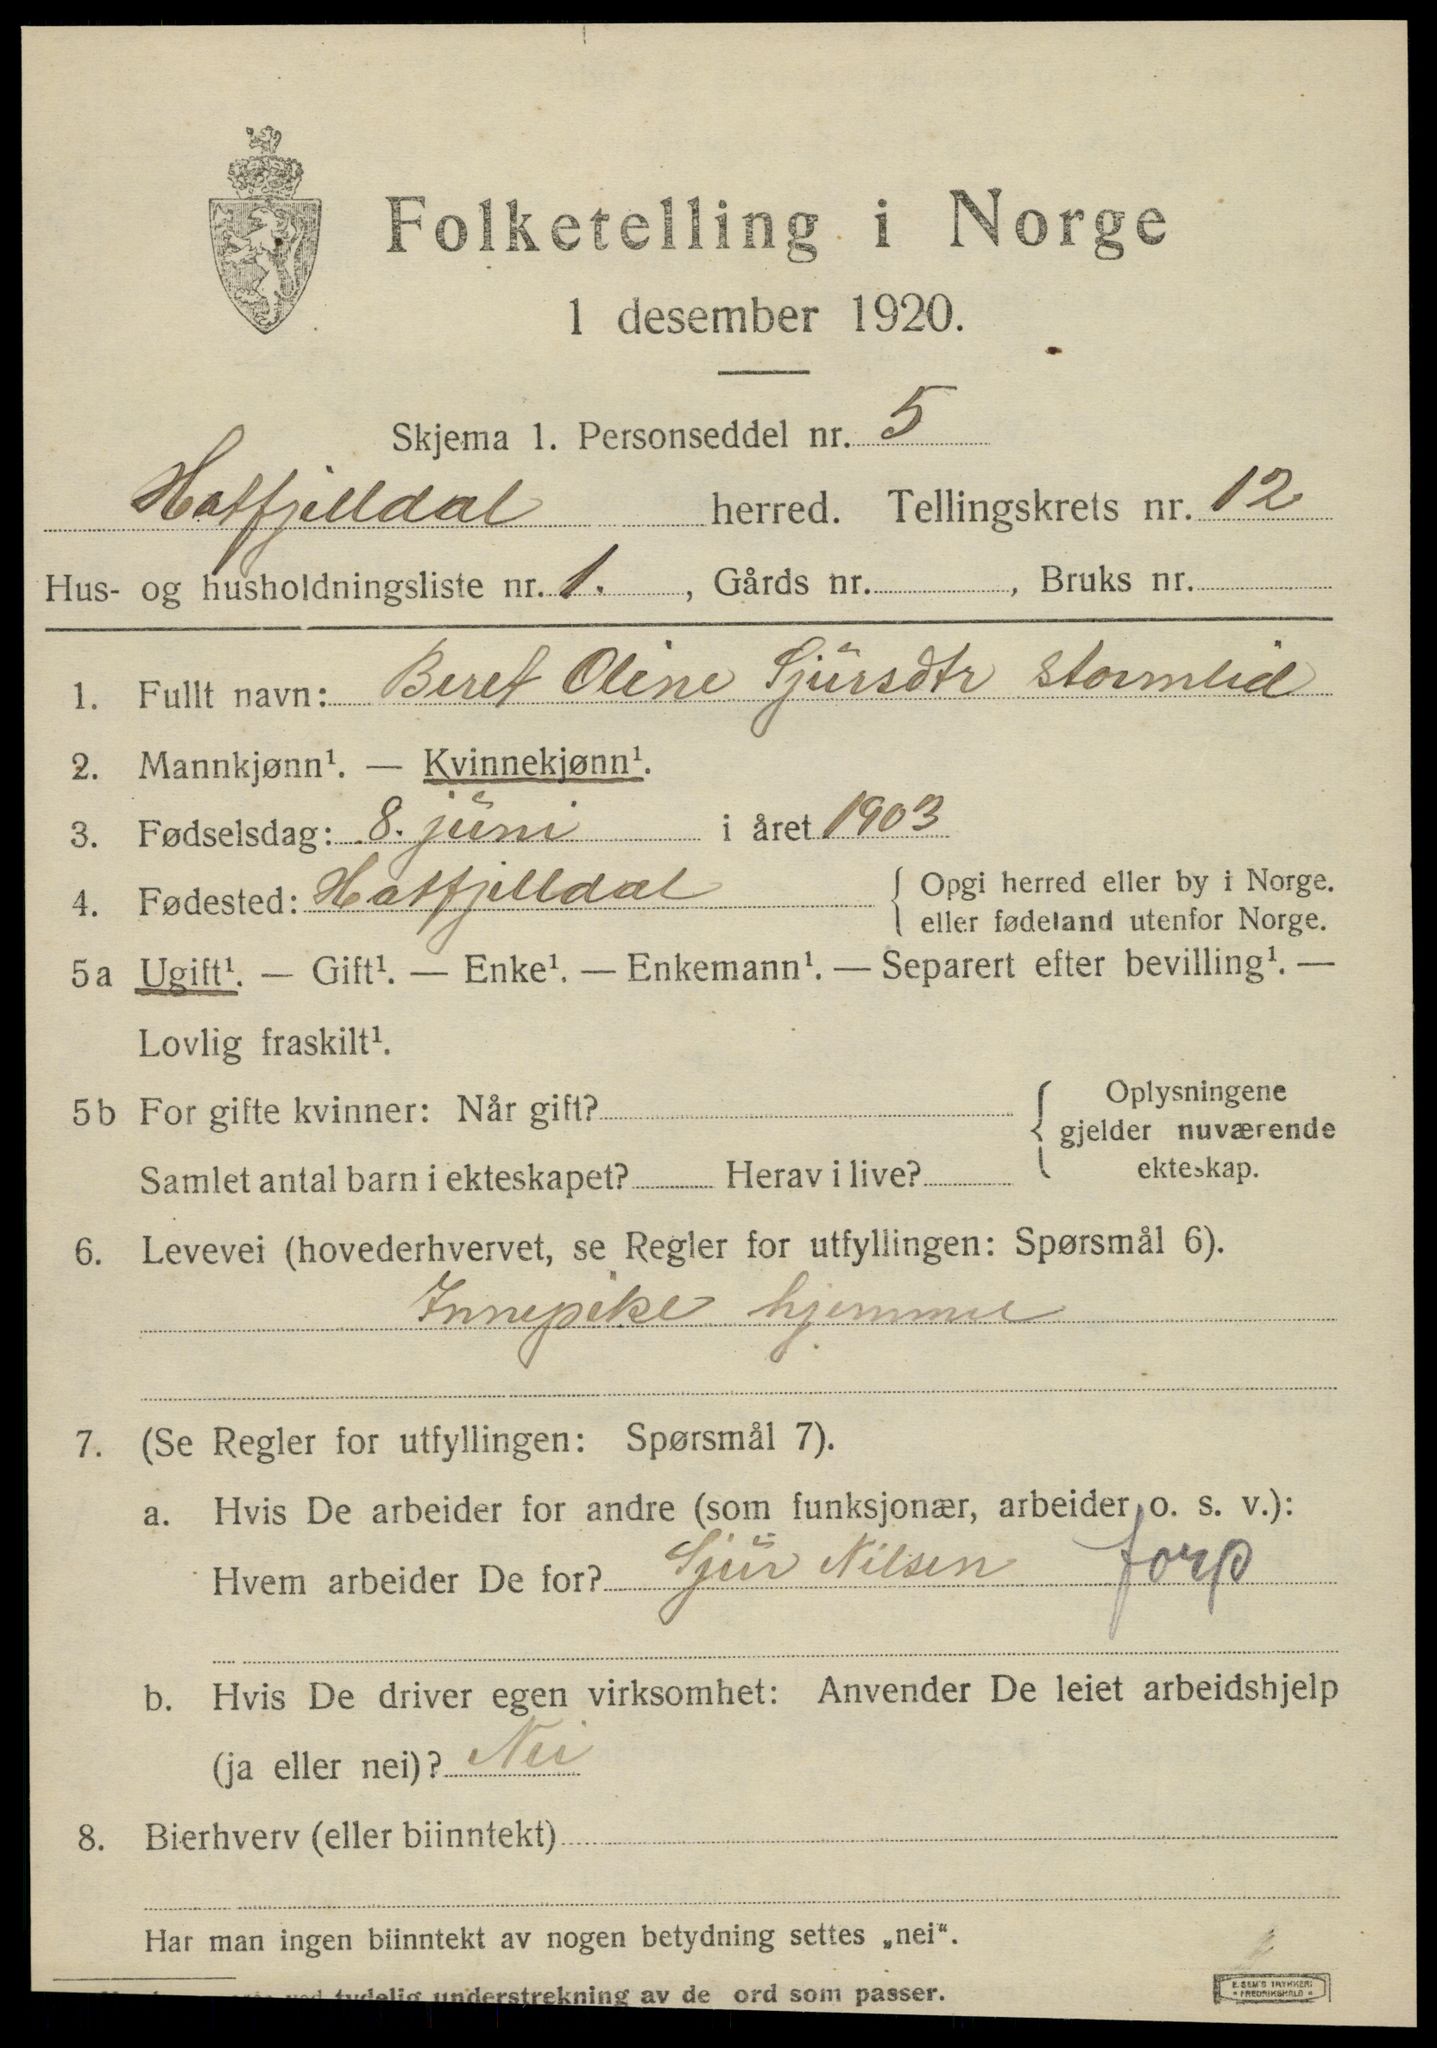 Folketelling i Norge
1 desember 1920.
Skjema 1. Personseddel nr. 5
Hatfjelldal herred. Tellingskrets nr. 12
Hus- og husholdningsliste nr. 1. , Gårds nr. , Bruks nr.
1. Fullt navn: Beret Oline Sjursdtr Stormlid
2. Mannkjønn¹. — Kvinnekjønn¹.
3. Fødselsdag: 8. juni i året 1903
4. Fødested: Hatfjelldal { Opgi herred eller by i Norge.
eller fødeland utenfor Norge.
5a Ugift¹. — Gift¹. — Enke¹. — Enkemann¹. — Separert efter bevilling¹. —
Lovlig fraskilt¹.
5b For gifte kvinner: Når gift? { Oplysningene
gjelder nuværende
Samlet antal barn i ekteskapet? Herav i live? ekteskap.
6. Levevei (hovederhvervet, se Regler for utfyllingen: Spørsmål 6).
Innepike hjemme
7. (Se Regler for utfyllingen: Spørsmål 7).
a. Hvis De arbeider for andre (som funksjonær, arbeider o. s. v.):
Hvem arbeider De for? Sjur Nilsen forp
b. Hvis De driver egen virksomhet: Anvender De leiet arbeidshjelp
(ja eller nei)? Nei
8. Bierhverv (eller biinntekt)
Har man ingen biinntekt av nogen betydning settes „nei“.
ved tydelig understrekning av de ord som passer.
E. SEM'S TRYKKERI
FREDRIKSHALD